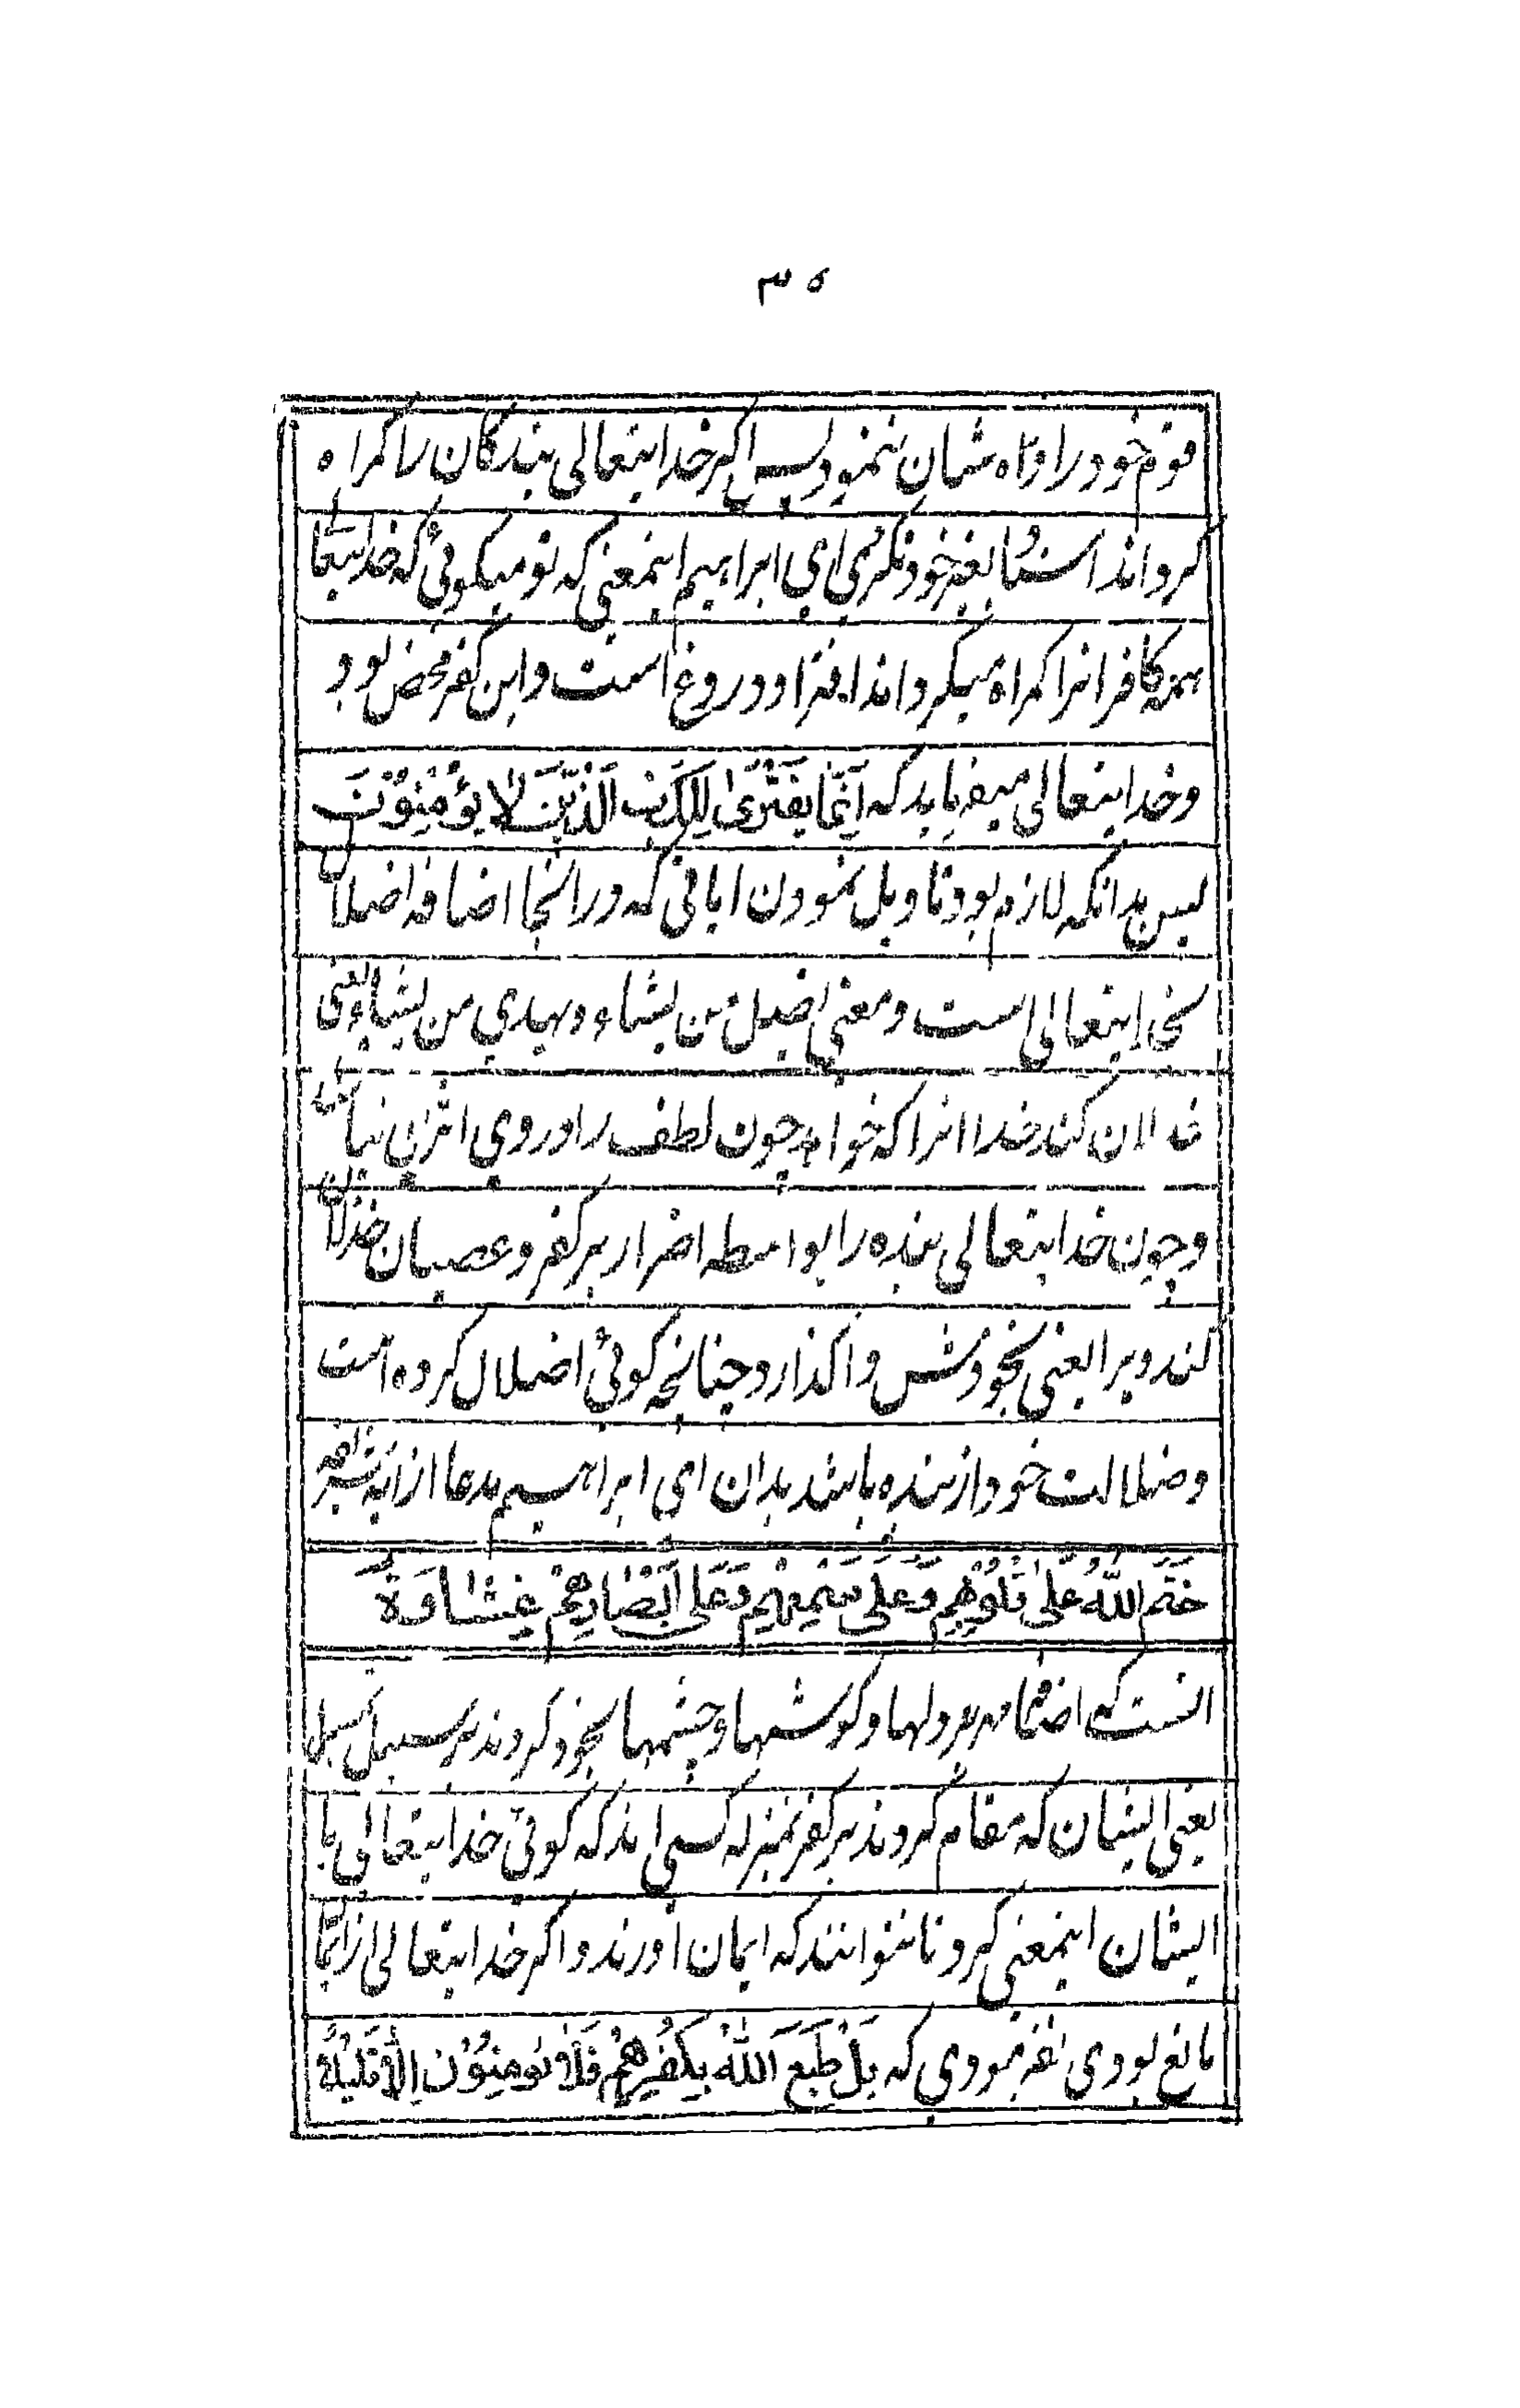 ۳۵
قوم خود را و راه شان ننمود پس اکر خدایتعالی بندکان را کمراه
کرداند استثنا بغیر خود نکردی ای ابراهیم اینمعنی که تو میکوئی که خدایتعا
همه کافرانرا کمراه میکرداند افترا و دروغ است و این کفر محض بود
و خدایتعالی میفرماید که اِنَّمَا یَفْتَرِی الْکَذِبَ الَّذِیْنَ لَا یُؤْمِنُوْنَ
پس بدانکه لازم بود تاویل نمودن ایاتی که در انجا اضافه اضلال
بخدایتعالی است و معنی یضل من یشاء و یهدی من یشاء یعنی
خذلان کند خدا انرا که خواهد چون لطف را در وی اثری نباشد
و چون خدایتعالی بنده را بواسطه اضرار بر کفر و عصیان خذلان
کند و ویرا یعنی بخودش واکذارد چنانچه کوئی اضلال کرده است
و ضلالت خود از بنده باشد بدان ای ابراهیم مدعا از ایه شریفه
خَتَمَ اللّٰهُ عَلٰی قُلُوْبِهِمْ وَعَلٰی سَمْعِهِمْ وَعَلٰی اَبْصَارِهِمْ غِشَاوَةٌ
انست که مهر بر دلها و کوشها و چشمها بخود کردند بر سبیل
یعنی ایشان که مقام کردند بر کفر بمنزله کسی اند که کوئی خدایتعالی با
ایشان اینمعنی کرد تا نتوانند که ایمان اورند و اکر خدایتعالی از ایمان
مانع بودی نفرمودی که بَلْ طَبَعَ اللّٰهُ بِکُفْرِهِمْ فَلَا یُؤْمِنُوْنَ اِلَّا قَلِیْلًا